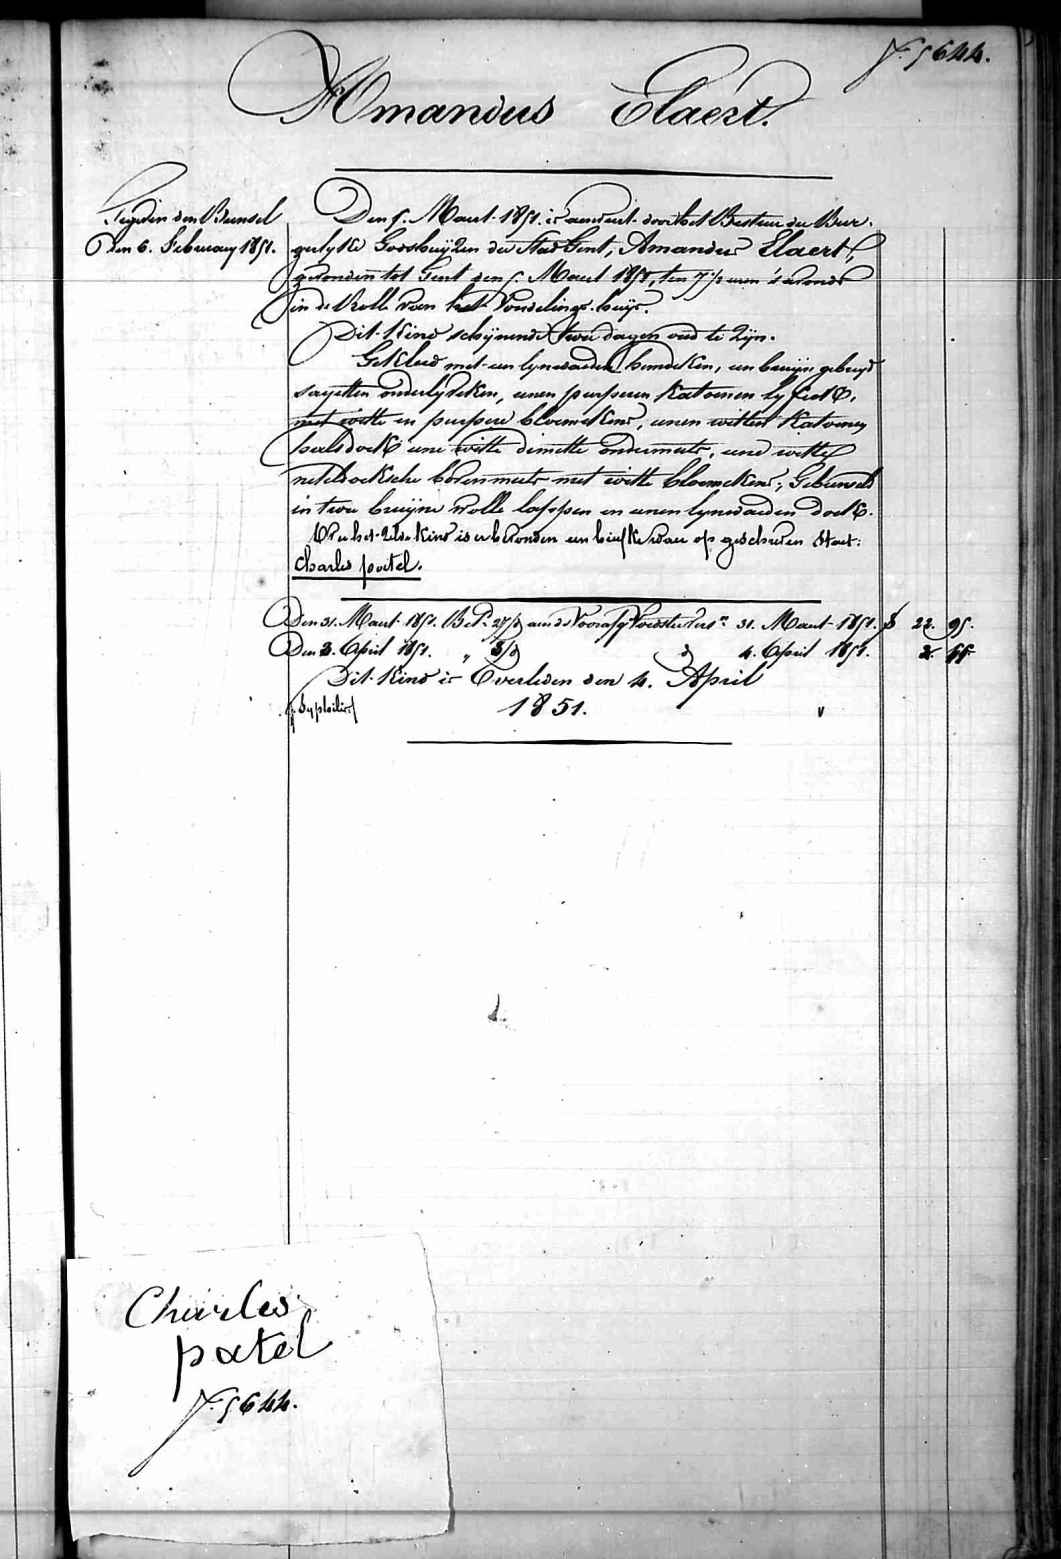 N.º 5644.
Amandus Elaert.
Den 5. Maart 1851. is aenveirt door het Bestuur der Bur-
gerlyke Godshuyzen der Stad Gent, Amandus Elaert,
gevonden tot Gent den 5. Maert 1851, ten 7 1/2 uren 's avonds
in de Rolle van het Vondelings-huys.
Dit Kind schynende twee dagen oud te zyn.
den Bunsel
den 6. February 1851.
Gekleed met een lynwaeden hemdeken, een bruyn gebreyd
sayetten onderlyveken, eenen purperen katoenen lyfrok,
met witte en purpere bloemekens, eenen witten katoenen
halsdoek eene witte dimette ondermuts, eene witte
neteldoeksche bovenmuts met witte bloemekens; Gebunseld
in twee bruyne wolle lappen en eenen lynwaeden doek.
By het zelve kind is er bevonden een briefke waer op geschreven staet:
Charles poctel.
Den 31. Maart 1851. Bet. 27/d aen de Voorsz. Voedster 31. Maart 1851. 22. 95.
Den 3. April 1851. „ 3/d d 4. April 1851. 2. 55
Dit Kind is Overleden den 4. April
1851.
syphilis
Charles
poctel
N.º 5644.